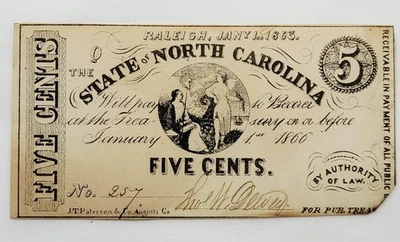 RALEIGH, JANY 1st 1863.
THE STATE OF NORTH CAROLINA
5
Will pay to Bearer
at the Treasury on or before
January 1st 1866
FIVE CENTS.
FIVE CENTS
No. 257
J.T. Paterson & Co. Augusta Ga
FOR PUB. TREA
BY AUTHORITY
OF LAW.
RECEIVABLE IN PAYMENT OF ALL PUBLIC